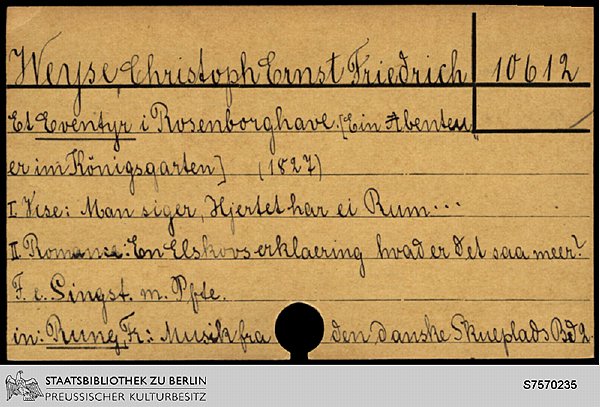 Weyse, Christoph Ernst Friedrich 10612
Et Eventyr i Rosenborghave. [Ein Abenteu-
er im Königsgarten] (1827)
I Vise: Man siger, Hjertet har ei Rum...
II Romance: En Elskovserklaering hvad er det saa meer?
F. e. Singst. m. Pfte.
in: Rung, Fr.: Musik fra den danske Skueplads Bd 2.
STAATSBIBLIOTHEK ZU BERLIN
PREUSSISCHER KULTURBESITZ
S7570235